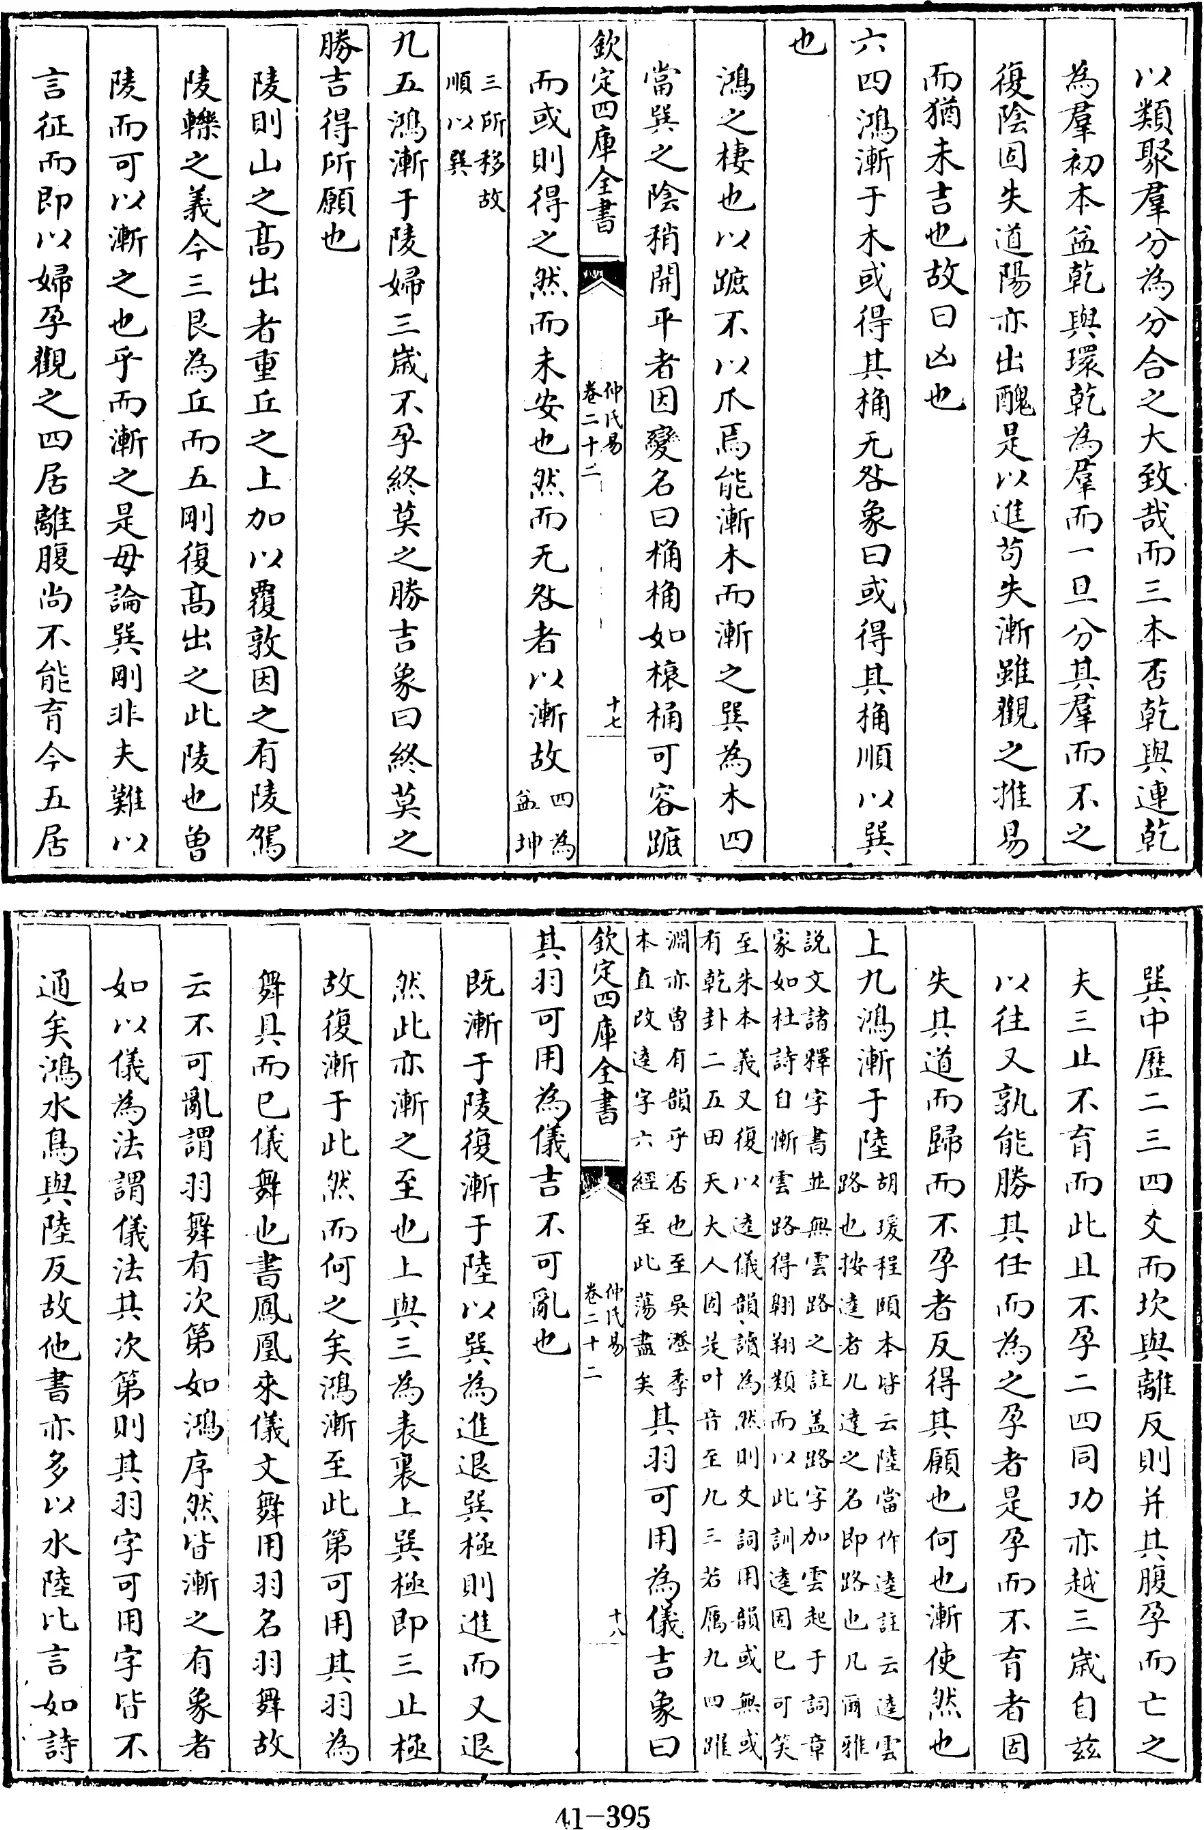 以類聚羣分為分合之大致哉而三本否乾與連乾
為羣初本益乾與環乾為羣而一旦分其羣而不之
復陰固失道陽亦出醜是以進茍失漸雖觀之推易
而猶未吉也故曰凶也
六四鴻漸于木或得其桷无咎象曰或得其桷順以巽
也
鴻之棲也以蹠不以爪焉能漸木而漸之巽為木四
當巽之陰稍開平者因變名曰桷桷如榱桷可容蹠
欽定四庫全書
仲氏易
卷二十二
十七
而或則得之然而未安也然而无咎者以漸故四為
益坤
三所移故
順以巽
九五鴻漸于陵婦三嵗不孕終莫之勝吉象曰終莫之
勝吉得所願也
陵則山之髙出者重丘之上加以覆敦因之有陵駕
陵轢之義今三艮為丘而五剛復髙出之此陵也曽
陵而可以漸之也乎而漸之是毋論巽剛非夫難以
言征而即以婦孕觀之四居離腹尚不能育今五居
巽中歴二三四爻而坎與離反則并其腹孕而亡之
夫三止不育而此且不孕二四同功亦越三嵗自兹
以往又孰能勝其任而為之孕者是孕而不育者固
失其道而歸而不孕者反得其願也何也漸使然也
上九鴻漸于陸胡瑗程頤本皆云陸當作逵註云逵雲
路也按逵者九達之名即路也凡爾雅
説文諸釋字書並無雲路之註盖路字加雲起于詞章
家如杜詩自慚雲路得翺翔類而以此訓逵固已可笑
至朱本義又復以逵儀韻讀為然則爻詞用韻或無或
有乾卦二五田天大人固是叶音至九三若厲九四躍
淵亦曽有韻乎否也至吳澄季
本直改逵字六經至此蕩盡矣其羽可用為儀吉象曰
欽定四庫全書
仲氏易
卷二十二
十八
其羽可用為儀吉不可亂也
既漸于陵復漸于陸以巽為進退巽極則進而又退
然此亦漸之至也上與三為表裏上巽極即三止極
故復漸于此然而何之矣鴻漸至此第可用其羽為
舞具而已儀舞也書鳳凰來儀文舞用羽名羽舞故
云不可亂謂羽舞有次第如鴻序然皆漸之有象者
如以儀為法謂儀法其次第則其羽字可用字皆不
通矣鴻水鳥與陸反故他書亦多以水陸比言如詩
41-395